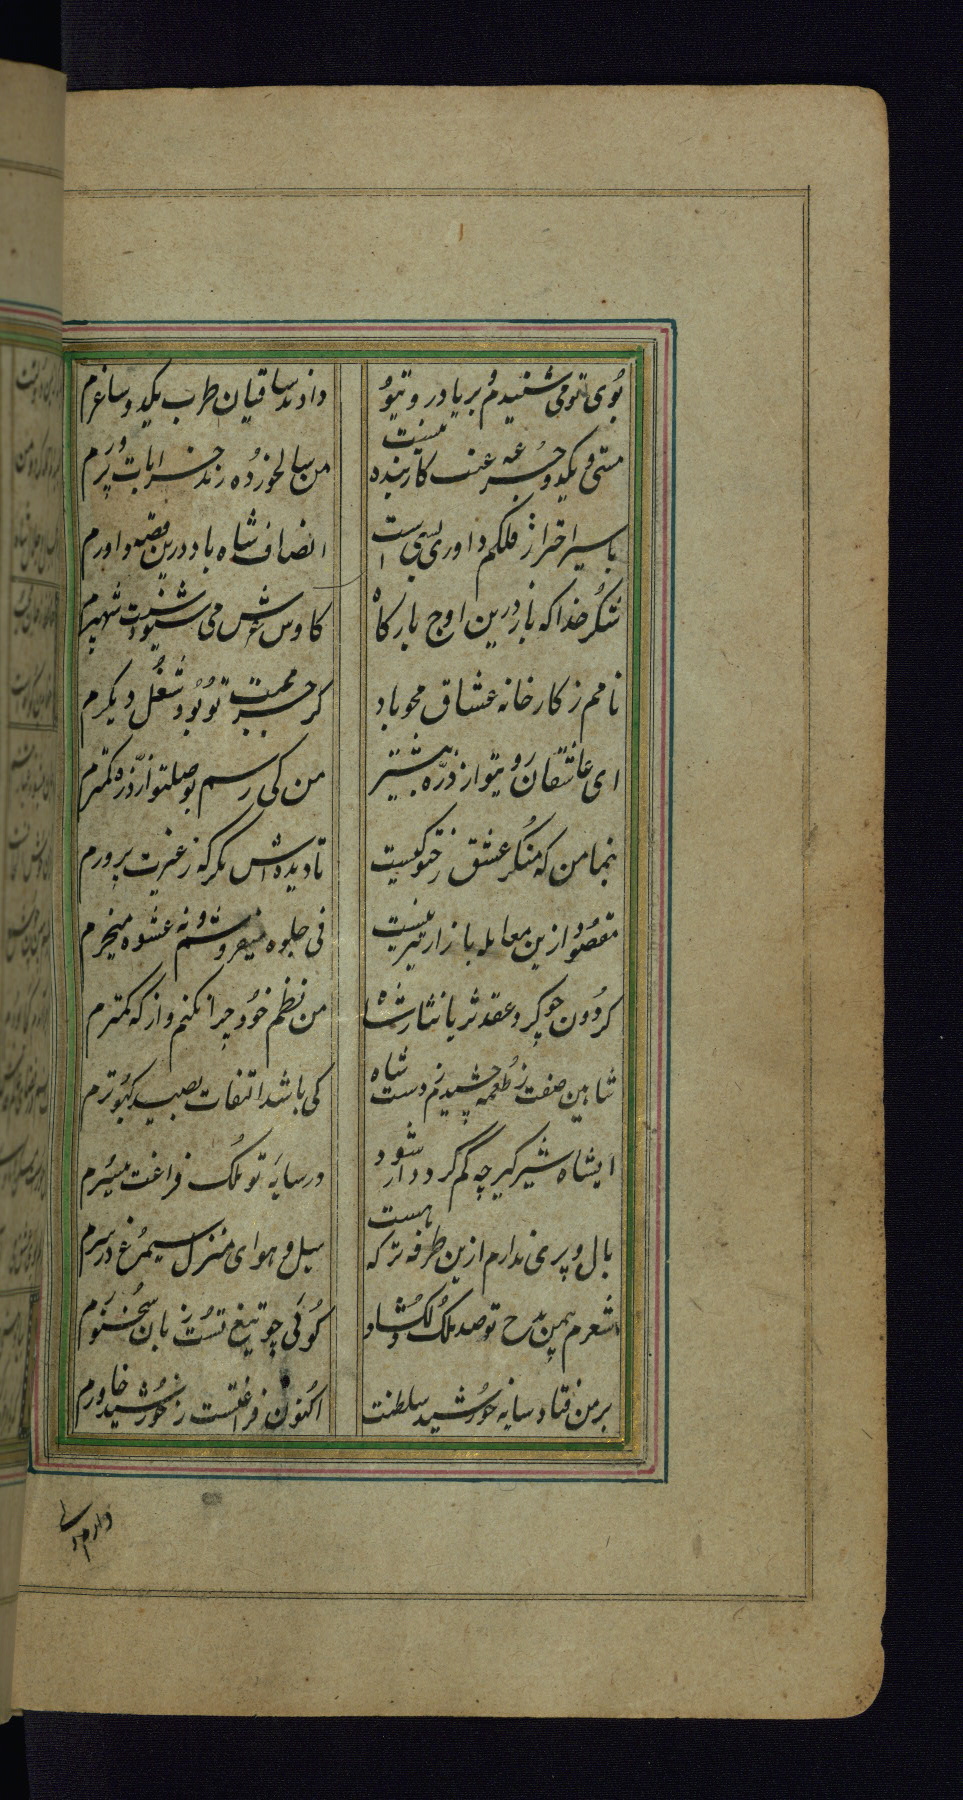 بوی تو می شنیدم و بر یاد رو تیو دادند ساقیان طرب یکدو ساغرم
مستی بیکدو جرعه عنب کار بنده نیست من سالخورده رند خرابات پرورم
با سیر اختر از فلکم داوری بسی است انصاف شاه باد درین قصه داورم
شکر خدا که باز درین اوج بارکاه کاوس عرش می شنود صیت شهپرم
نامم ز کارخانه عشاق محو باد کر جز محبت تو بود شغل دیکرم
ای عاشقان رو یتو از ذره بیشتر من کی رسم بوصلتو از ذره کمترم
بنما بمن که منکر عشق رختو کیست تا دیده اش بکزلک غیرت برورم
مقصود ازین معامله بازار تیزیست نی جلوه میفروشم و نه عشوه میخرم
کردون چو کرد عقد ثریا نثار شاه من نظم خود چرا نکنم و از که کمترم
شاهین صفت ز طعمه چشیدم ز دست شاه کی باشد التفات بصید کبوترم
ایشاه شیرکیر چه کم کردد ار شود در سایه تو ملک فراغت میسرم
بال و پری ندارم ازین طرفه تر که هست میل و هوای منزل سیمرغ در سرم
شعرم بیمن مدح تو صد ملک دل کشاد کوئی چو تیغ تست زبان سخنورم
بر من فتاد سایه خورشید سلطنت اکنون فراغتست ز خورشید خاورم